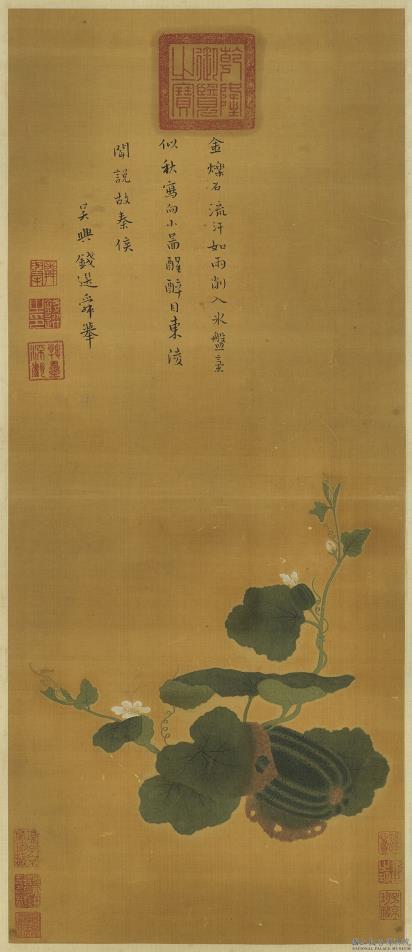 乾隆
御覽
之寶
金爍石流汗如雨削入氷盤氣
似秋寫向小啚醒醉目東陵
聞說故秦侯
吳興錢選舜舉
NATIONAL PALACE MUSEUM